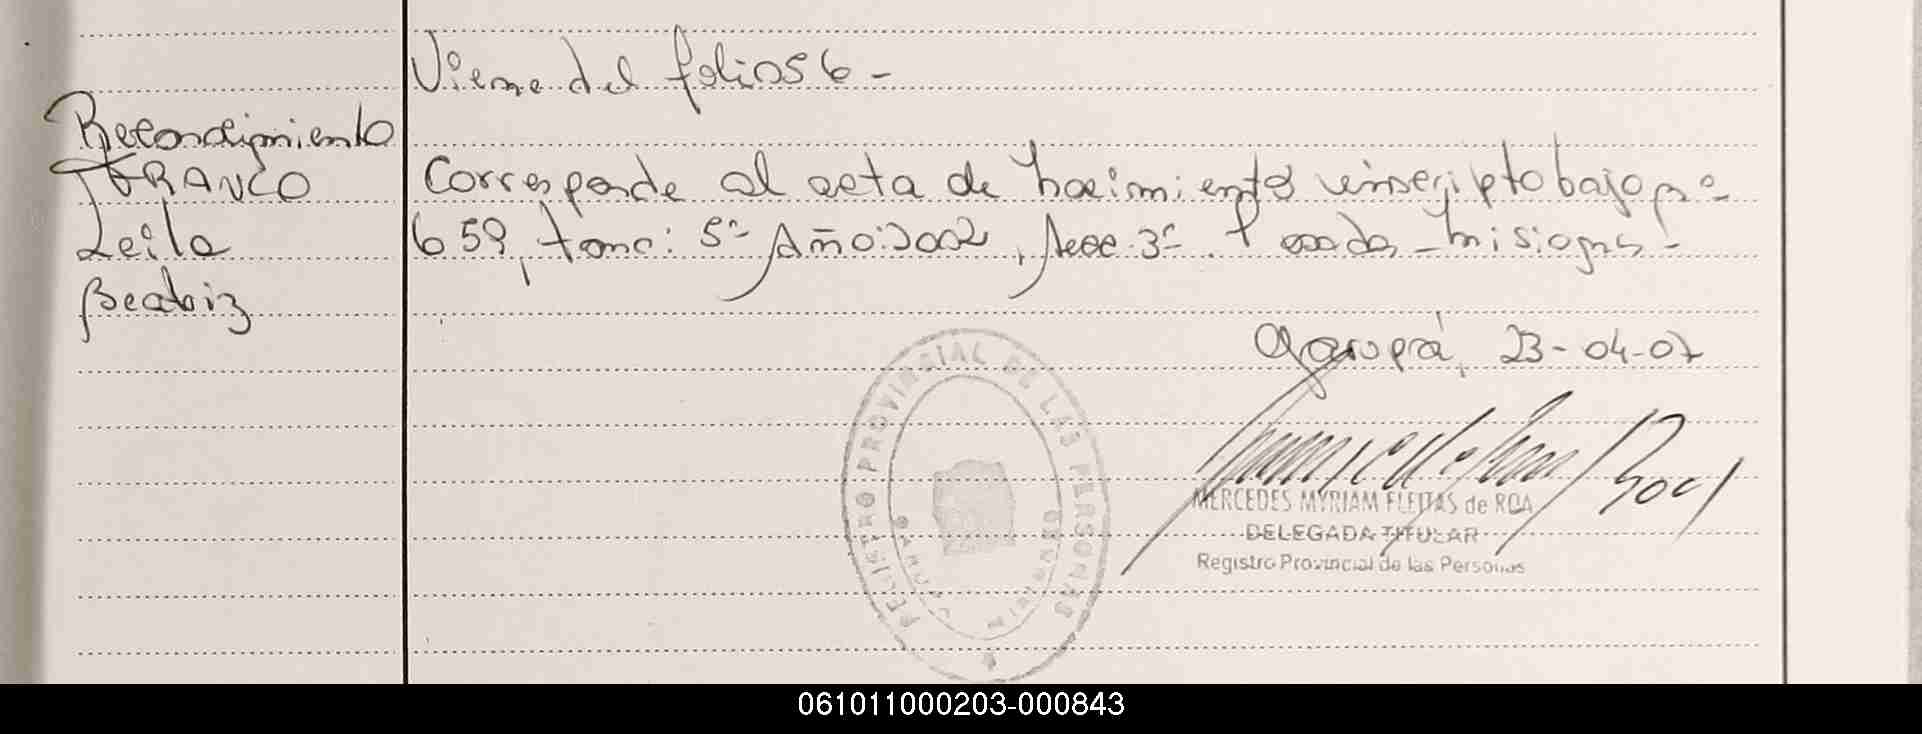 Viene del folio 56-
Reconocimiento
FRANCO
Leila
Beatriz
Corresponde al acta de nacimiento inscripto bajo nº
659, tomo: 5º Año: 2002, Secc. 3º. Posadas - Misiones-
Garupá, 23-04-07
MERCEDES MYRIAM FLEITAS de ROA
DELEGADA TITULAR
Registro Provincial de las Personas
REGISTRO PROVINCIAL DE LAS PERSONAS
GARUPA
061011000203-000843